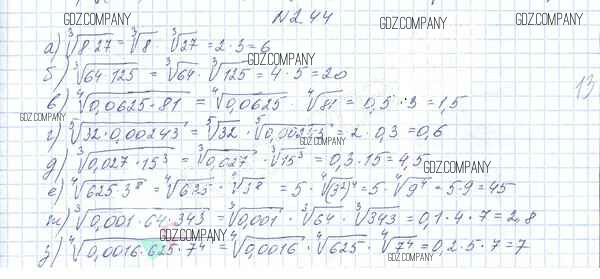 GDZ.COMPANY
№2.44
GDZ.COMPANY
GDZ.COMPANY
а) ∛(8·27) = ∛8 · ∛27 = 2·3 = 6
GDZ.COMPANY
б) ∛(64·125) = ∛64 · ∛125 = 4·5 = 20
в) ∜(0,0625·81) = ∜0,0625 · ∜81 = 0,5·3 = 1,5
13
GDZ.COMPANY
г) ⁵√(32·0,00243) = ⁵√32 · ⁵√0,00243 = 2·0,3 = 0,6
GDZ.COMPANY
д) ∛(0,027·15³) = ∛0,027 · ∛15³ = 0,3·15 = 4,5
GDZ.COMPANY
е) ∜(625·3⁸) = ∜625 · ∜3⁸ = 5·∜(3²)⁴ = 5·∜9⁴ = 5·9 = 45
ж) ∛(0,001·64·343) = ∛0,001 · ∛64 · ∛343 = 0,1·4·7 = 2,8
GDZ.COMPANY
з) ∜(0,0016·625·7⁴) = ∜0,0016 · ∜625 · ∜7⁴ = 0,2·5·7 = 7
GDZ.COMPANY